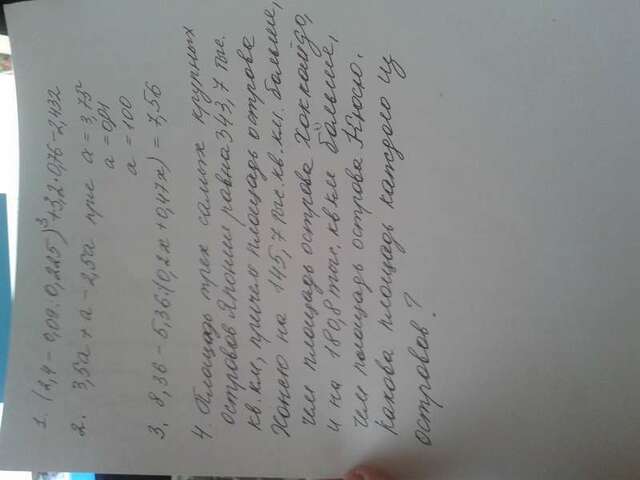 1. (2,4 - 0,09 : 0,225)³ + 3,2 · 0,76 - 2,432
2. 3,5а + а - 2,5а при а = 3,75
а = 0,91
а = 100
3. 8,36 - 5,36 : (0,2х + 0,47х) = 7,56
4 Площадь трех самых крупных
островов Японии равна 343,7 тыс.
кв. км, причем площадь острова
Хонсю на 145,7 тыс. кв. км. больше,
чем площадь острова Хоккайдо,
и на 180,8 тыс. кв км больше,
чем площадь острова Кюсю.
Какова площадь каждого из
островов?